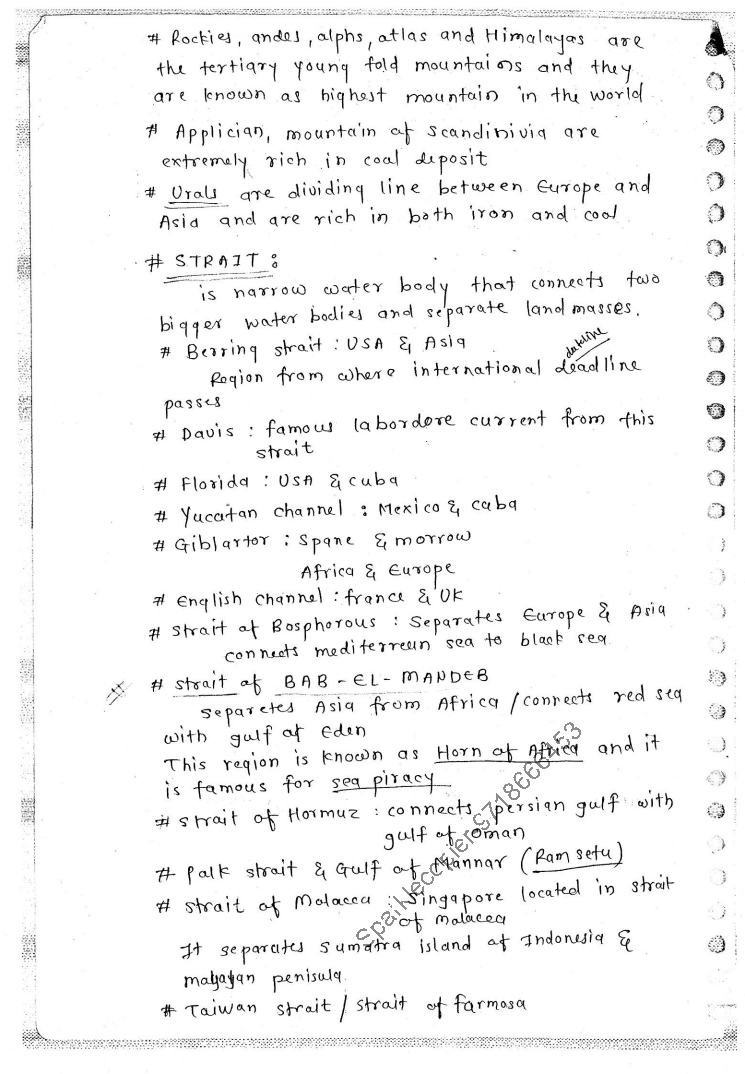 # Rockies, andes, alphs, atlas and Himalayas are
the tertiary young fold mountains and they
are known as highest mountain in the world
# Applician, mountain of Scandinivia are
extremely rich in coal deposit
# Urals are dividing line between Europe and
Asia and are rich in both iron and coal
# STRAIT :
is narrow water body that connects two
bigger water bodies and separate land masses.
# Berring strait : USA & Asia
dateline
Region from where international deadline
passes
# Davis : famous labordore current from this
strait
# Florida : USA & cuba
# Yucatan channel : Mexico & caba
# Giblartor : Spane & morrow
Africa & Europe
# English channel : france & UK
# strait of Bosphorous : Separates Europe & Asia
connects mediterreun sea to black sea
# strait of BAB-EL-MANDEB
separetes Asia from Africa / connects red sea
with gulf of Eden
This region is known as Horn of Africa and it
is famous for sea piracy
# strait of Hormuz : connects persian gulf with
gulf of oman
# palk strait & Gulf of Mannar (Ram setu)
# strait of Malacca : Singapore located in strait
of malacca
It separates sumatra island of Indonesia &
malayan penisula
# Taiwan strait / strait of farmosa